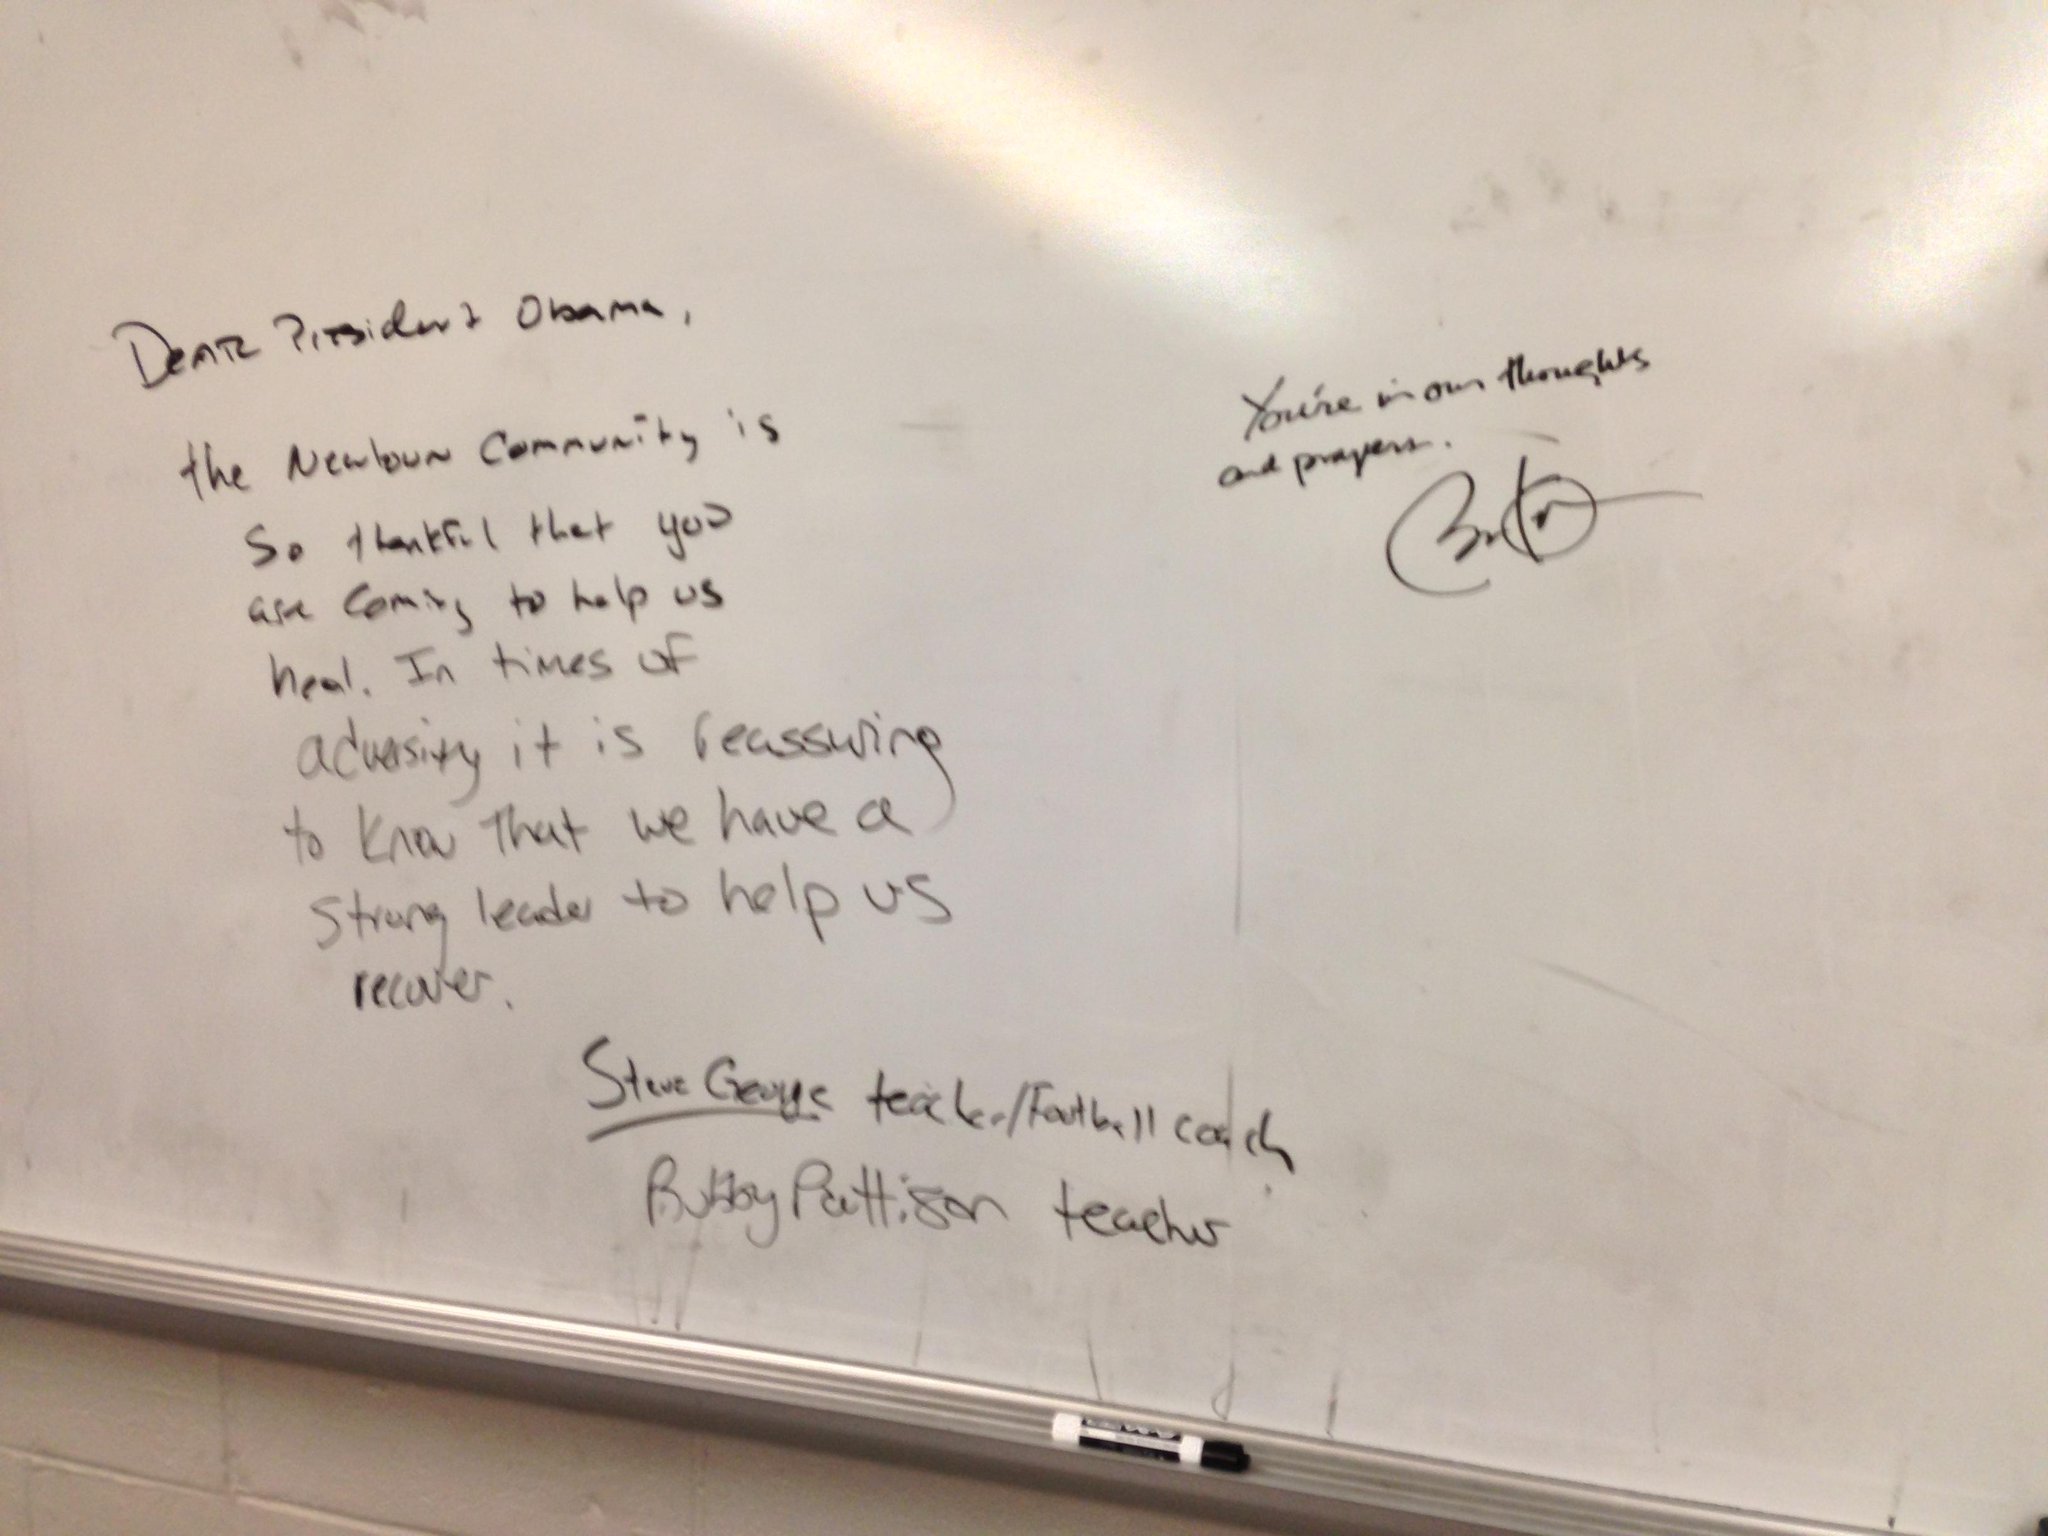 Dear President Obama,
the Newtown Community is
So thankful that you
are coming to help us
heal. In times of
adversity it is reassuring
to know that we have a
strong leader to help us
recover.
Steve George teacher/Football coach
Bobby Pattison teacher
You're in our thoughts
and prayers.